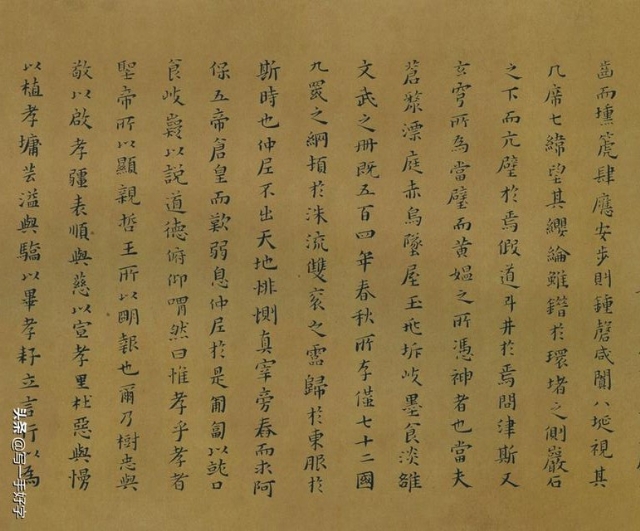 齒而壎箎肆應安步則鍾磬咸聞八埏視其
几席七緯望其纓綸雖錯於環堵之側巖石
之下而亢壁於焉假道斗井於焉問津斯又
玄穹所為當璧而黃媼之所憑神者也當夫
蒼漦漂庭赤烏墜屋玉飛坼岐墨食淡雒
文武之冊既五百四年春秋所存僅七十二國
九罭之綱於洙流雙袞之靈歸於東服於
斯時也仲尼不出天地排惻真宰旁而求阿
保五帝倉皇而歎弱息仲尼於是匍匐以就口
食岐嶷以說道德俯仰喟然曰惟孝乎孝者
聖帝所以顯親哲王所以明報也爾乃樹忠與
敬以啟孝疆表順與慈以宣孝里杜惡與慢
以植孝墉苦溢與驕以畢孝耔立言行以為
头条@写一手好字